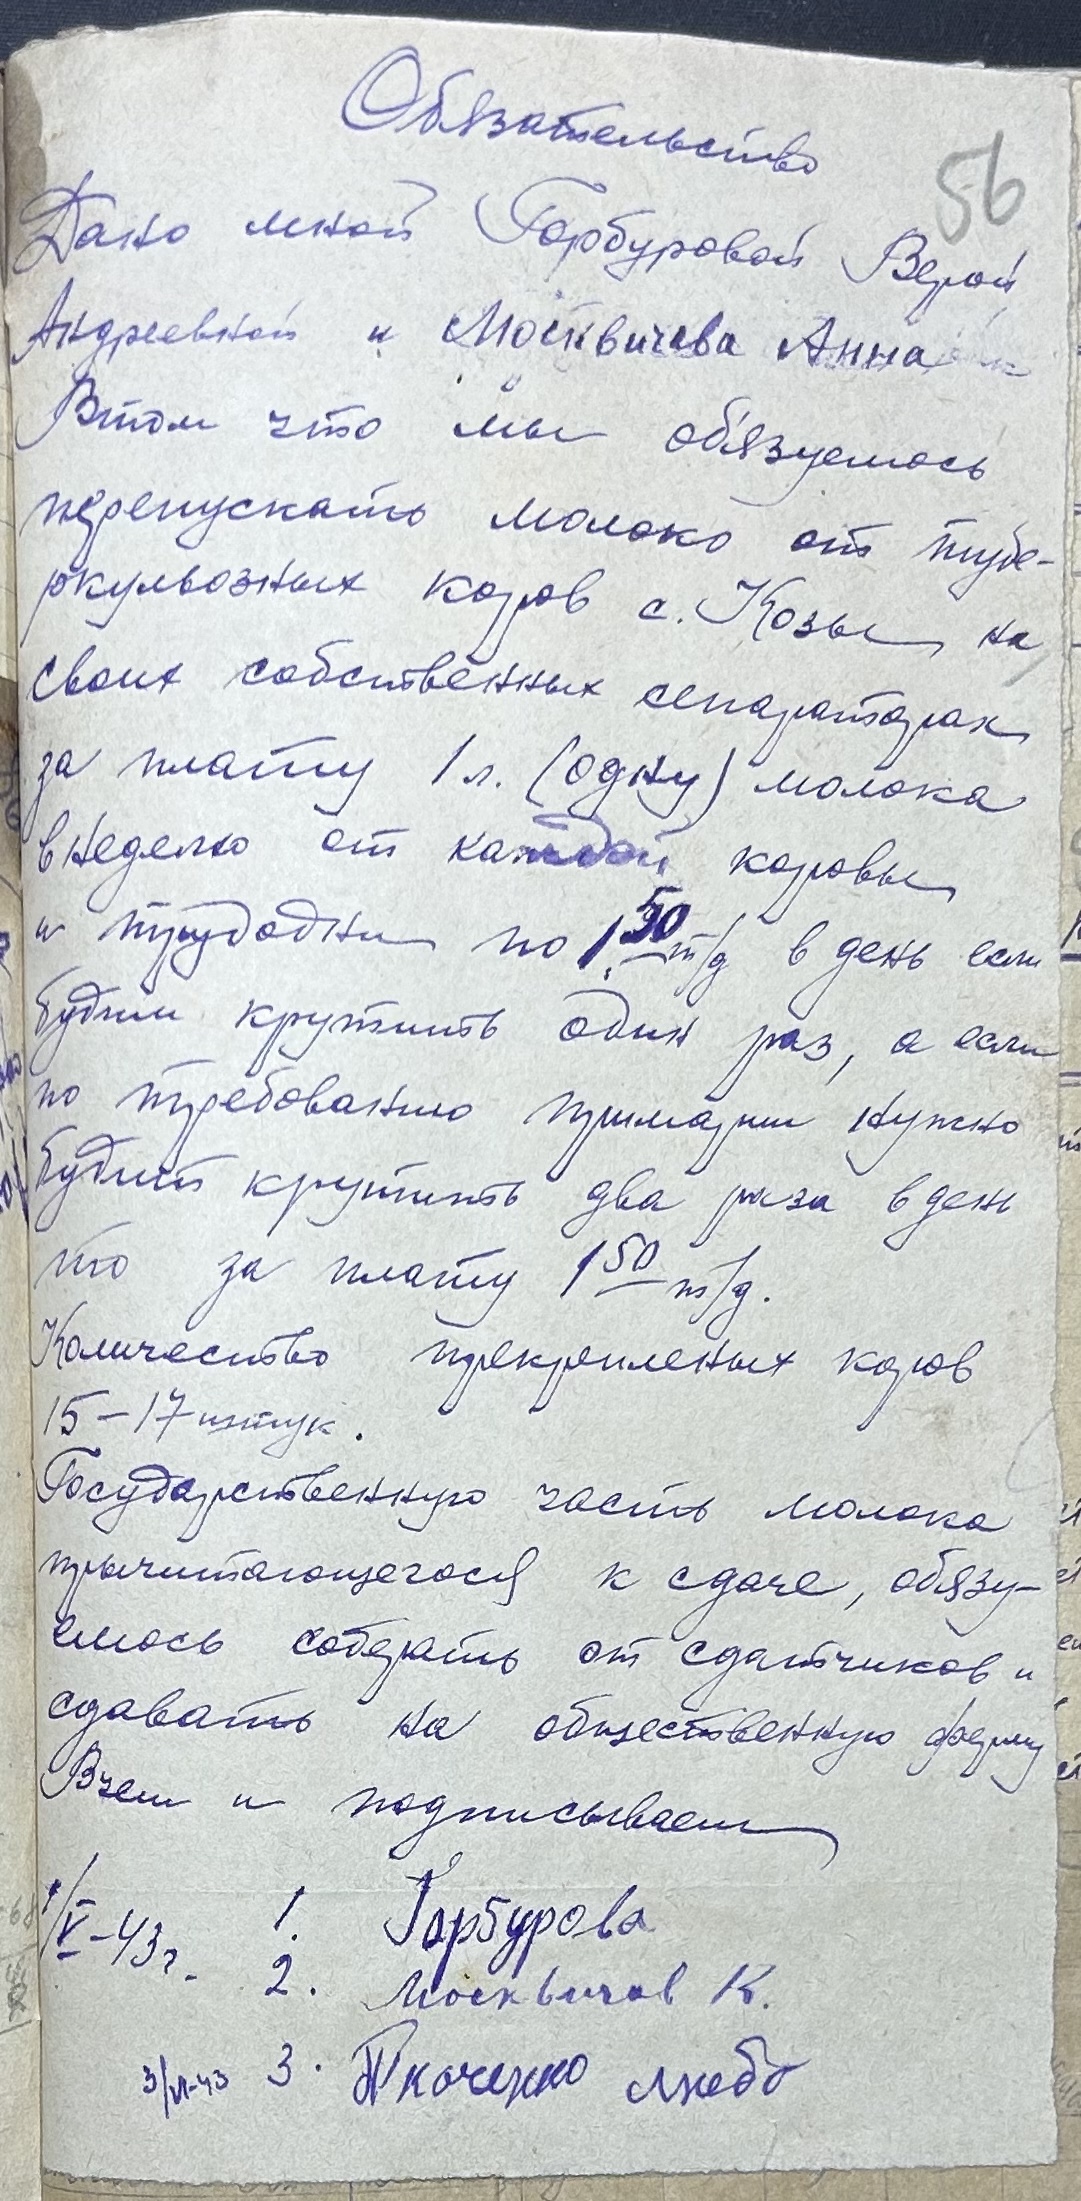 Обязательство
56
Дано мной Горбуровой Верой
Андреевной и Москвичева Анна
Втом что мы обязуемось
перепускать молоко от тубе-
ркульозных коров с. Козы на
своих собственных сепараторах
за плату 1 л. (одну) молока
в неделю от каждой коровы
и трудодни по 1,50 т/д в день если
будим крутить один раз, а если
по требованию примарии нужно
будит крутить два раза в день
то за плату 1 50 т/д.
Количество прекрепленых коров
15-17 штук.
Государственную часть молока
причитающегося к сдаче, обязу-
емось соберать от сдатчиков и
сдавать на общественную ферму
Вчем и подписываем
1/V-43г. 1. Горбурова
2. Москвичов К.
3/VI-43 3. Ткоченко Любо